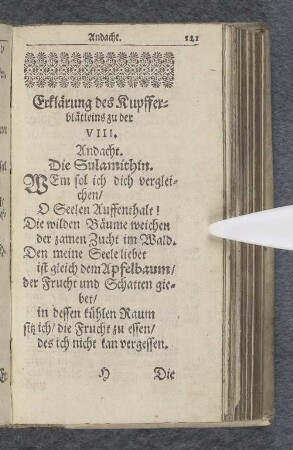 Andacht. 121
Erklärung des Kupffer-
blätleins zu der
VIII.
Andacht.
Die Sulamithin.
WEm sol ich dich verglei-
chen/
O Seelen Auffenthalt!
Die wilden Bäume weichen
der zamen Zucht im Wald.
Den meine Seele liebet
ist gleich dem Apfelbaum/
der Frucht und Schatten gie-
bet/
in dessen kühlen Raum
sitz ich/ die Frucht zu essen/
des ich nicht kan vergessen.
H Die